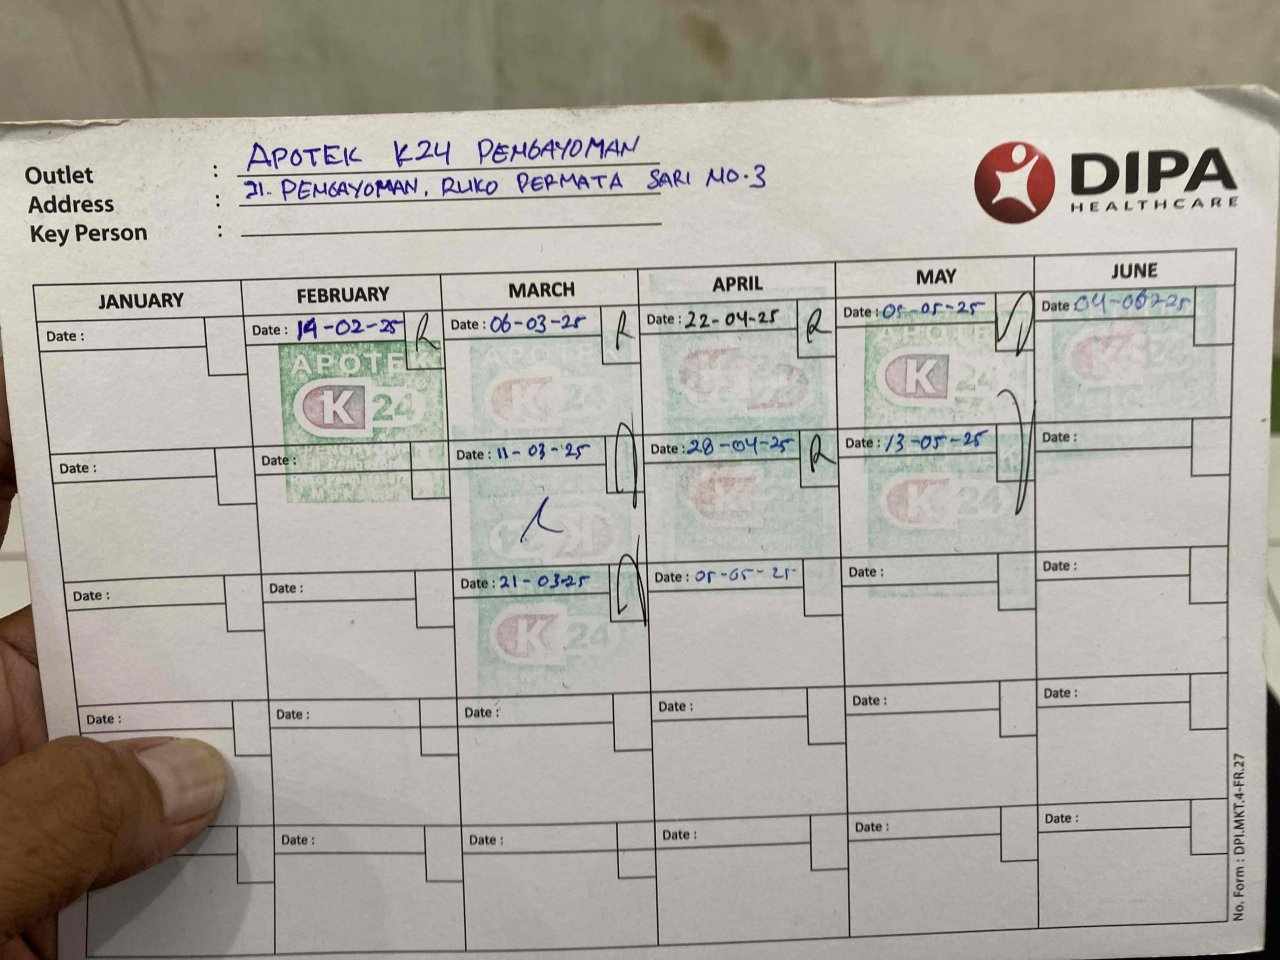 Outlet : APOTEK K24 PENGAYOMAN
Address : Jl. PENGAYOMAN, RUKO PERMATA SARI NO.3
Key Person :
DIPA
HEALTHCARE
JANUARY FEBRUARY MARCH APRIL MAY JUNE
Date : Date : 14-02-25 R Date : 06-03-25 R Date : 22-04-25 R Date : 05-05-25 Date : 04-06-25
APOTEK APOTEK APOTEK
K 24 K 24 K 24 K 24 K 24
Date : Date : Date : 11-03-25 Date : 28-04-25 R Date : 13-05-25 Date :
K 24 K 24 K 24
Date : Date : Date : 21-03-25 Date : 05-05-25 Date : Date :
K 24
Date : Date : Date : Date : Date : Date :
Date : Date : Date : Date : Date :
No. Form : DPI.MKT.4-FR.27